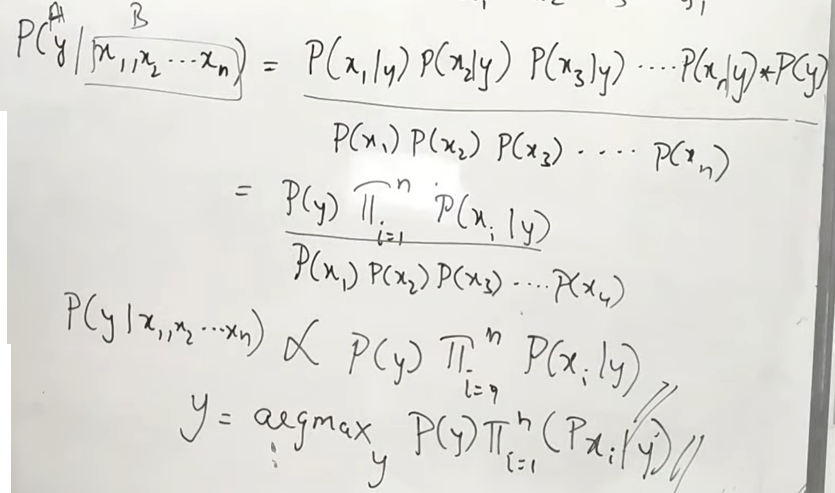 P(y/x₁,x₂...xₙ) = P(x₁/y) P(x₂/y) P(x₃/y) ....P(xₙ/y)*P(y)
A B
P(x₁) P(x₂) P(x₃) ..... P(xₙ)
= P(y) ∏ⁿᵢ₌₁ P(xᵢ/y)
P(x₁) P(x₂) P(x₃) ....P(x₄)
P(y/x₁,x₂...xₙ) ∝ P(y) ∏ⁿᵢ₌�9 P(xᵢ/y)//
y = argmax y P(y) ∏ⁿᵢ₌₁ (Pxᵢ/y)//